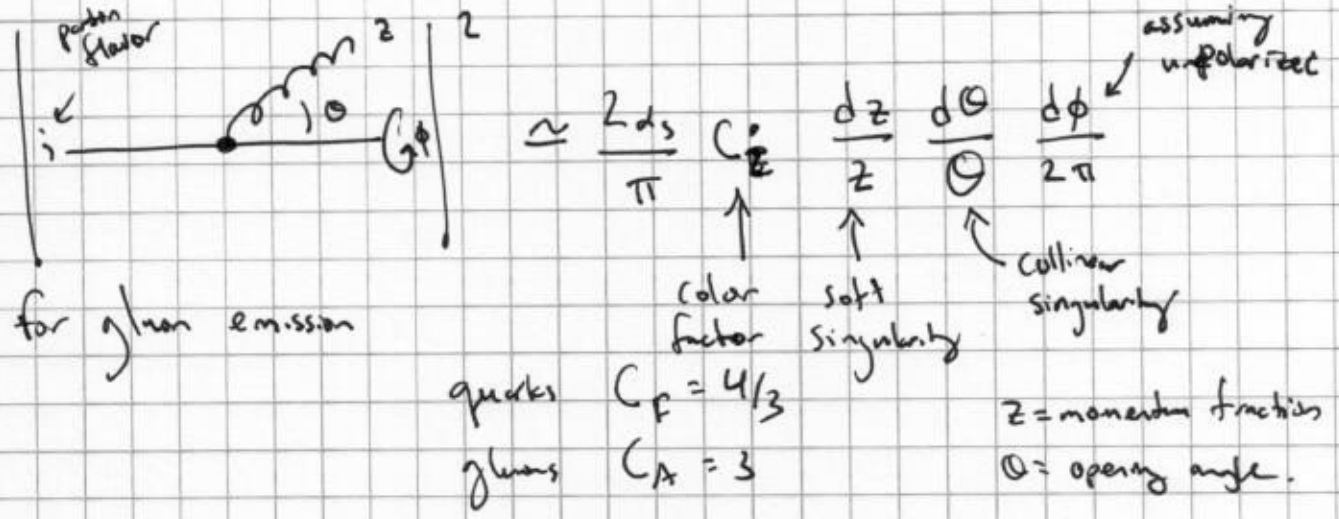 parton
flavor
i z θ φ 2 ≃ 2αs/π Ci dz/z dθ/θ dφ/2π
assuming
unpolarized
for gluon emission
color
factor
soft
singularity
collinear
singularity
quarks CF = 4/3
gluons CA = 3
z = momentum fraction
θ = opening angle.